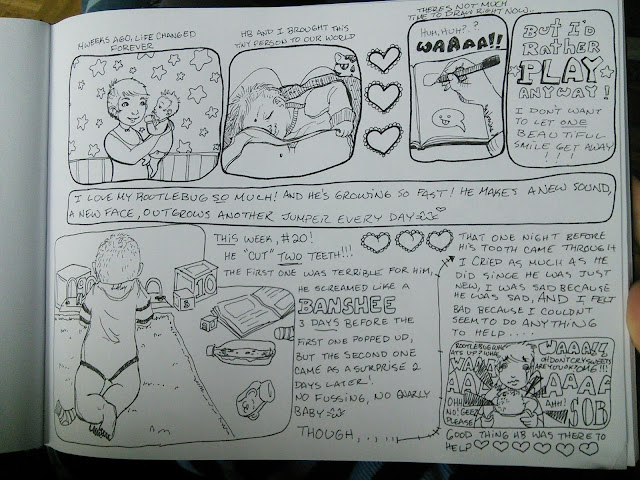 4 WEEKS AGO, LIFE CHANGED
FOREVER
HB AND I BROUGHT THIS
TINY PERSON TO OUR WORLD
THERE'S NOT MUCH
TIME TO DRAW RIGHT NOW..
HUH, HUH?.?
WAAAA!!
BUT I'D
RATHER
PLAY
ANYWAY!
I DON'T WANT
TO LET ONE
BEAUTIFUL
SMILE GET AWAY
!!!
I LOVE MY ROOTLEBUG SO MUCH! AND HE'S GROWING SO FAST! HE MAKES A NEW SOUND,
A NEW FACE, OUTGROWS ANOTHER JUMPER EVERY DAY
THIS WEEK, #20!
HE "CUT" TWO TEETH!!!
THE FIRST ONE WAS TERRIBLE FOR HIM,
HE SCREAMED LIKE A
BANSHEE
3 DAYS BEFORE THE
FIRST ONE POPPED UP,
BUT THE SECOND ONE
CAME AS A SURPRISE 2
DAYS LATER!
NO FUSSING, NO GNARLY
BABY
THOUGH,.....
THAT ONE NIGHT BEFORE
HIS TOOTH CAME THROUGH
I CRIED AS MUCH AS HE
DID SINCE HE WAS JUST
NEW, I WAS SAD BECAUSE
HE WAS SAD, AND I FELT
BAD BECAUSE I COULDN'T
SEEM TO DO ANYTHING
TO HELP....
ROOTLEBUG
WAAA!!
OH DON'T CRY SWEETY
ARE YOU OK
OHH
NO! GEE
PLEASE!
AHH!
SOB
GOOD THING HB WAS THERE TO
HELP